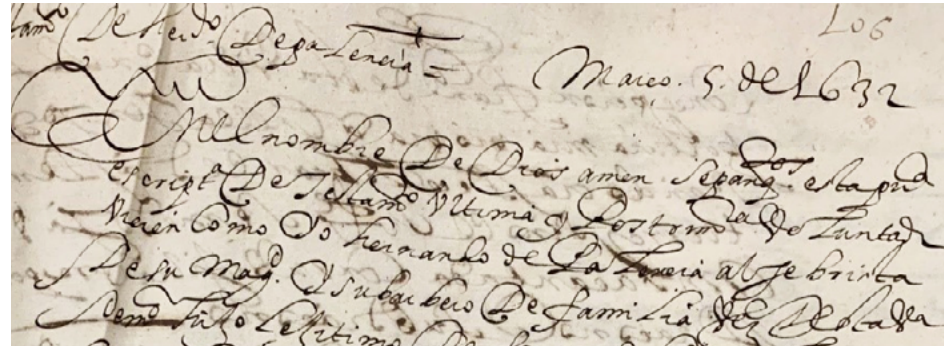 106
tamº De herdº De palencia =
Março. 5. de 1632
En el nombre De Dios amen sepanqº los esta puᶜᵃ
escriptª De Testamº Vltima y Postrimª Voluntad
Vieren Como Yo hernando de Palencia algebrista
De su Magᵈ. Y su barbero De familia Vzº De esta Vª
Hijo Lexitimo De